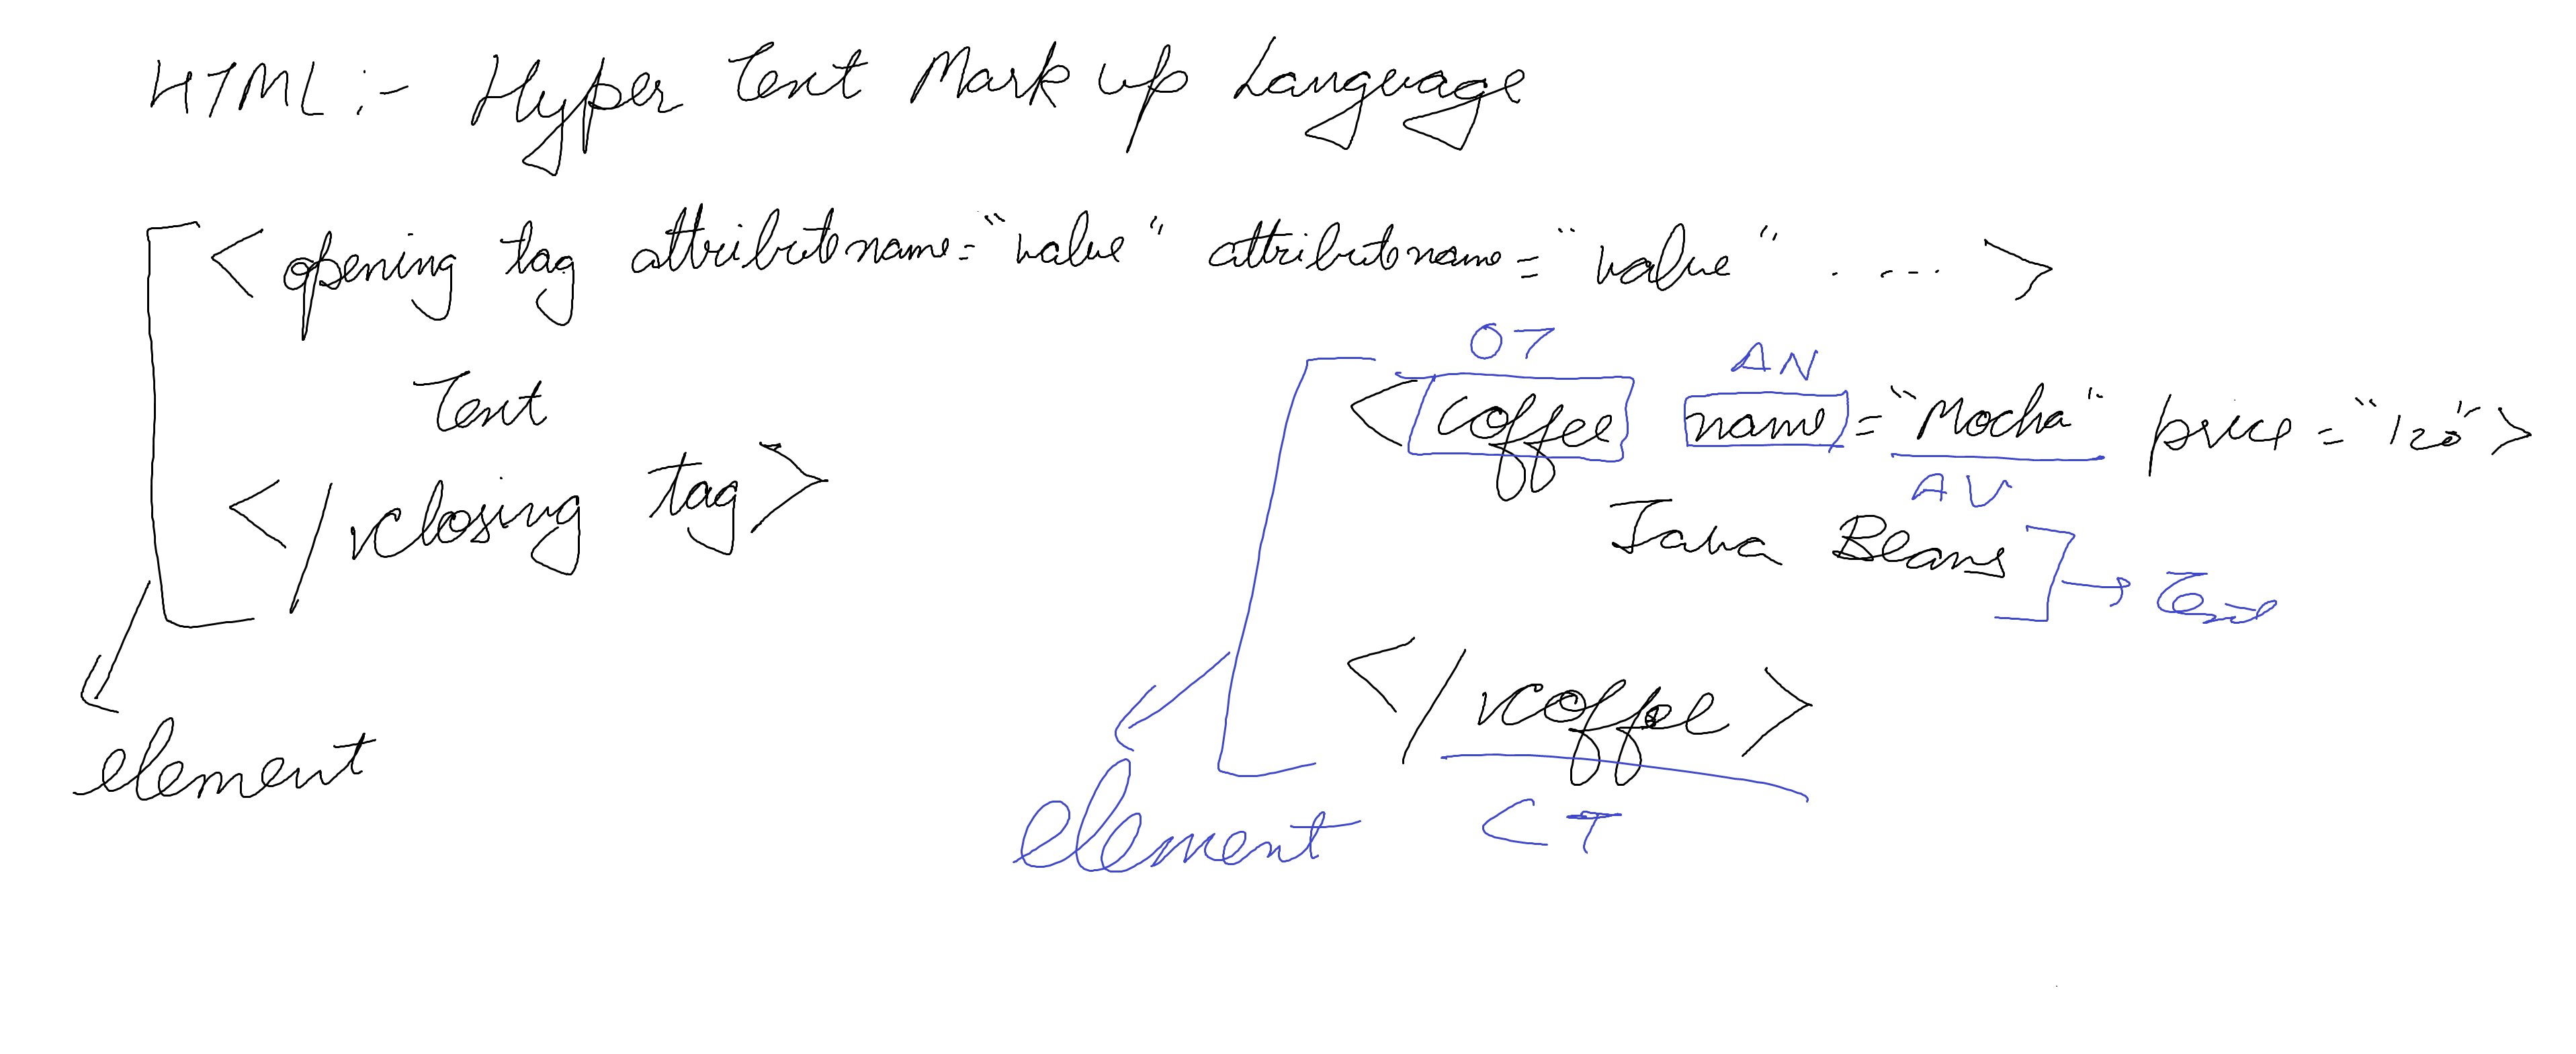 HTML :- Hyper Text Mark up Language
<opening tag attributename="value" attributename="value" . ...>
Text
</closing tag>
element
OT
AN
<coffee name="Mocha" price="120">
AV
Java Beans
Text
</coffee>
CT
element